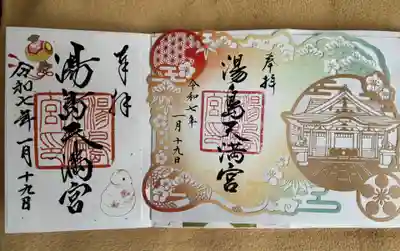 奉拝
湯島天満宮
令和七年
一月十九日
奉拝
湯島天満宮
令和七年一月十九日